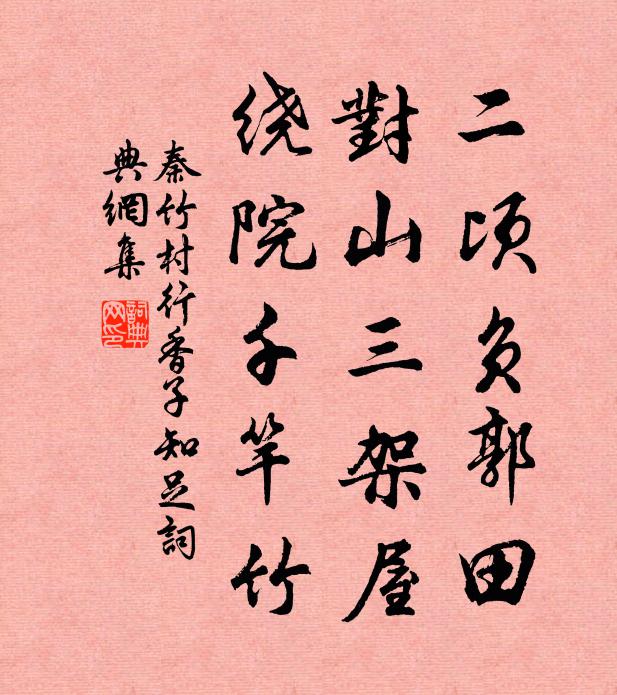 二頃負郭田
對山三架屋
绕院千竿竹
秦竹村行香子知足詞
典網集
詞典
网印